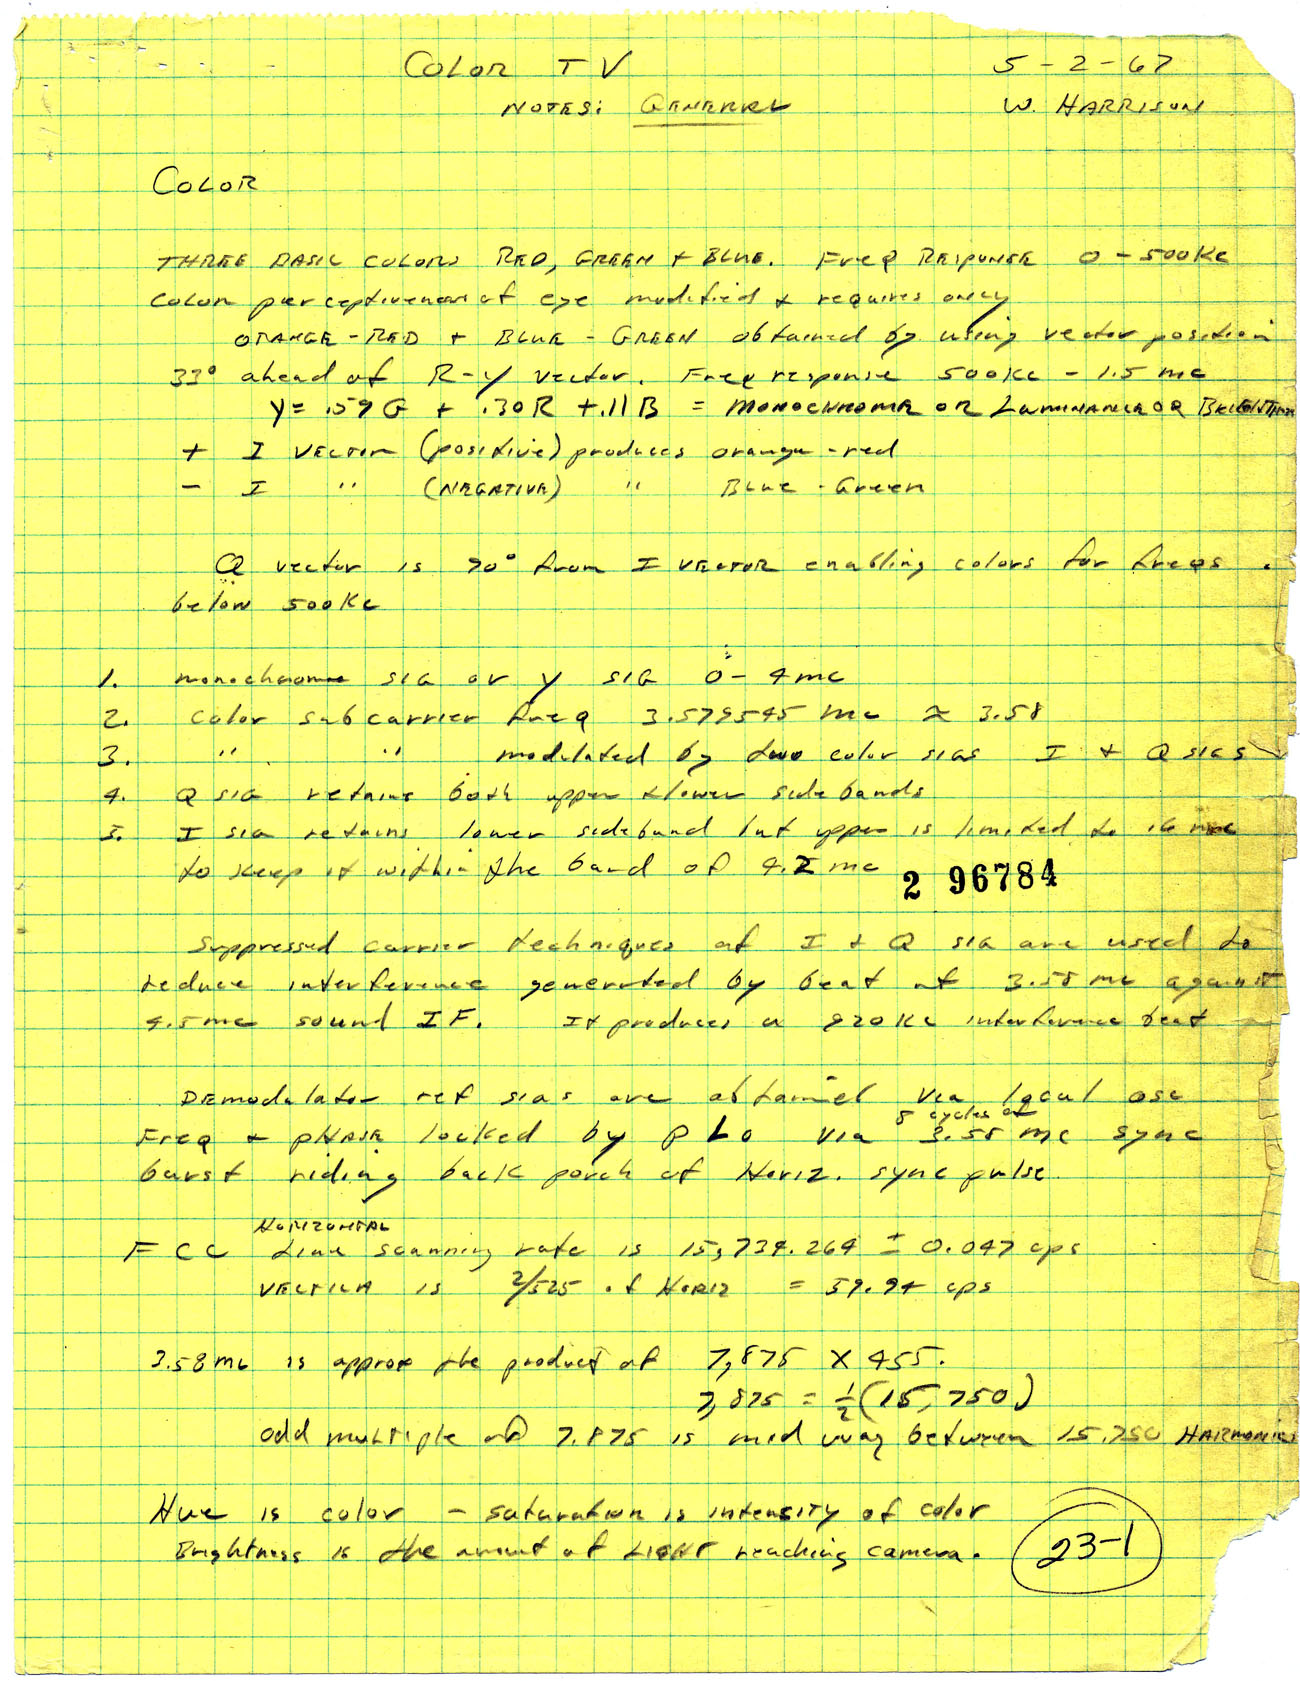 COLOR TV 5-2-67
NOTES: GENERAL W. HARRISON
COLOR
THREE BASIC COLORS RED, GREEN + BLUE. Freq RESPONSE 0-500KC
Color perceptiveness of eye modified + requires only
ORANGE-RED + BLUE-GREEN obtained by using vector position
33° ahead of R-Y vector. Freq response 500KC - 1.5 mc
Y = .59G + .30R + .11B = MONOCHROME OR LUMINANCE OR BRIGHTNESS
+ I VECTOR (positive) produces orange-red
- I " (NEGATIVE) " Blue-Green
Q vector is 90° from I VECTOR enabling colors for freqs
below 500KC
1. monochrome SIG or Y SIG 0-4mc
2. Color subcarrier freq 3.579545 mc ≈ 3.58
3. " " modulated by two color sigs I + Q SIGS
4. Q SIG retains both upper + lower sidebands
5. I sig retains lower sideband but upper is limited to .6 mc
to keep it within the band of 4.2 mc
2 96784
Suppressed carrier techniques of I + Q sig are used to
reduce interference generated by beat of 3.58 mc against
4.5mc sound IF. It produces a 920KC interference beat
DEmodulator ref sigs are obtained via local osc
8 cycles of
Freq + PHASE locked by PLO via 3.58 mc sync
burst riding back porch of Horiz. sync pulse.
HORIZONTAL
FCC Line scanning rate is 15,734.264 ± 0.047 cps
VERTICAL is 2/525 of HORIZ = 59.94 cps
3.58mc is approx the product of 7,875 X 455.
7,875 = 1/2 (15,750)
odd multiple of 7.875 is mid way between 15.750 HARMONICS
Hue is color - saturation is intensity of color
Brightness is the amount of LIGHT reaching camera.
23-1